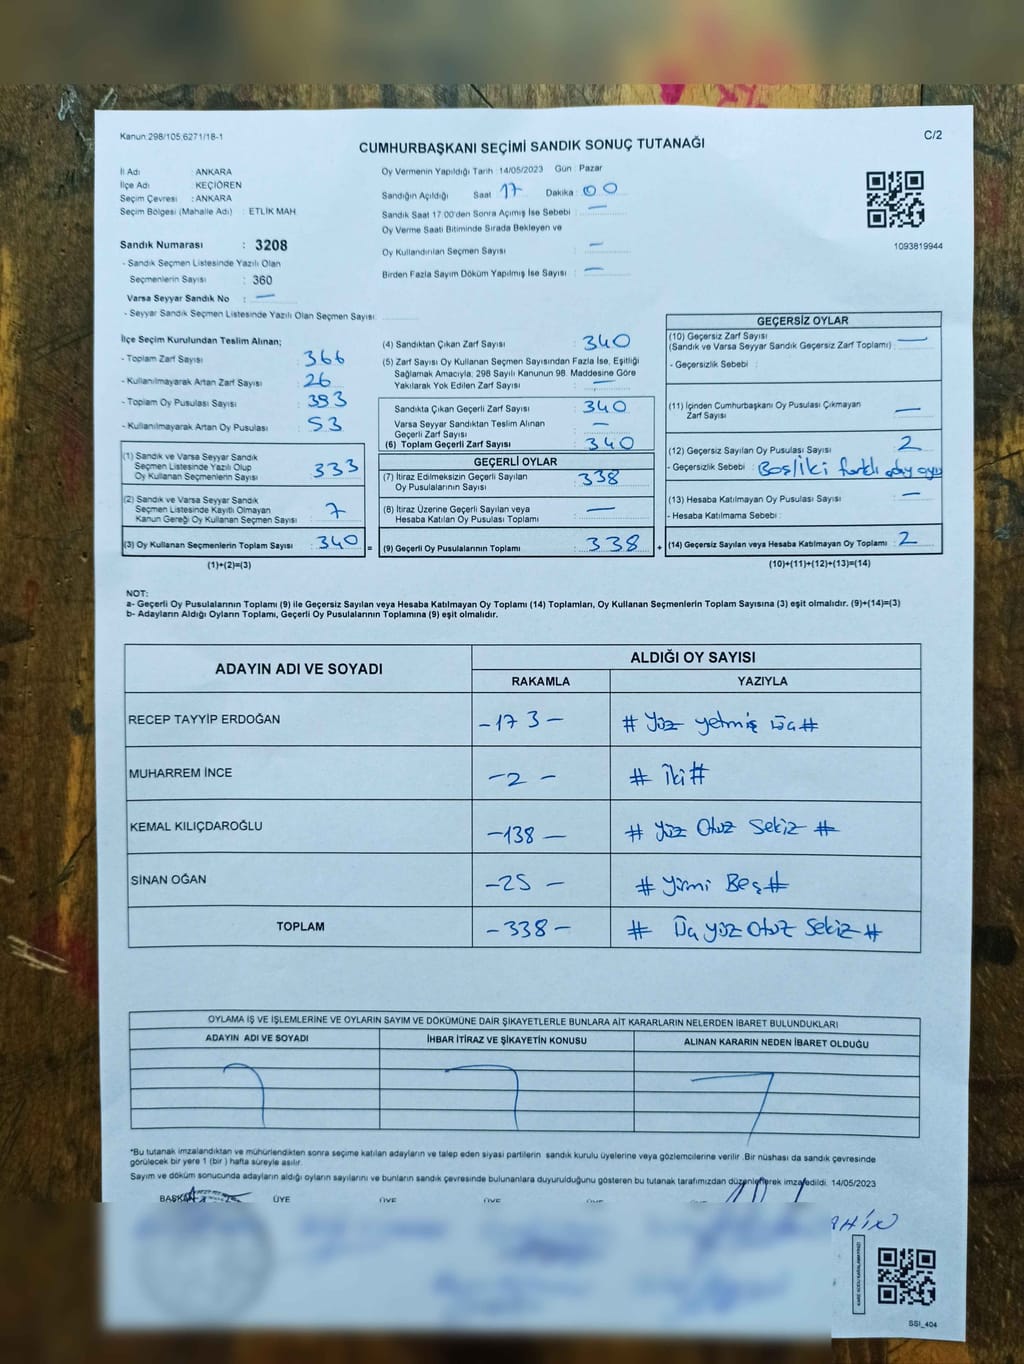 Kanun 298/105,6271/18-1
C/2
CUMHURBAŞKANI SEÇİMİ SANDIK SONUÇ TUTANAĞI
İl Adı ANKARA
İlçe Adı : KEÇİÖREN
Seçim Çevresi : ANKARA
Seçim Bölgesi (Mahalle Adı) : ETLİK MAH
Sandık Numarası : 3208
- Sandık Seçmen Listesinde Yazılı Olan
Seçmenlerin Sayısı : 360
Varsa Seyyar Sandık No : —
- Seyyar Sandık Seçmen Listesinde Yazılı Olan Seçmen Sayısı
Oy Vermenin Yapıldığı Tarih 14/05/2023 Gün Pazar
Sandığın Açıldığı Saat 17 Dakika : 00
Sandık Saat 17:00'den Sonra Açılmış İse Sebebi : —
Oy Verme Saati Bitiminde Sırada Bekleyen ve
Oy Kullandırılan Seçmen Sayısı : —
Birden Fazla Sayım Döküm Yapılmış İse Sayısı : —
1093819944
İlçe Seçim Kurulundan Teslim Alınan;
- Toplam Zarf Sayısı : 366
- Kullanılmayarak Artan Zarf Sayısı : 26
- Toplam Oy Pusulası Sayısı : 393
- Kullanılmayarak Artan Oy Pusulası : 53
(1) Sandık ve Varsa Seyyar Sandık
Seçmen Listesinde Yazılı Olup
Oy Kullanan Seçmenlerin Sayısı : 333
(2) Sandık ve Varsa Seyyar Sandık
Seçmen Listesinde Kayıtlı Olmayan
Kanun Gereği Oy Kullanan Seçmen Sayısı : 7
(3) Oy Kullanan Seçmenlerin Toplam Sayısı : 340 =
(1)+(2)=(3)
(4) Sandıktan Çıkan Zarf Sayısı : 340
(5) Zarf Sayısı Oy Kullanan Seçmen Sayısından Fazla İse, Eşitliği
Sağlamak Amacıyla; 298 Sayılı Kanunun 98. Maddesine Göre
Yakılarak Yok Edilen Zarf Sayısı : —
Sandıkta Çıkan Geçerli Zarf Sayısı : 340
Varsa Seyyar Sandıktan Teslim Alınan
Geçerli Zarf Sayısı : —
(6) Toplam Geçerli Zarf Sayısı : 340
GEÇERLİ OYLAR
(7) İtiraz Edilmeksizin Geçerli Sayılan
Oy Pusulalarının Sayısı : 338
(8) İtiraz Üzerine Geçerli Sayılan veya
Hesaba Katılan Oy Pusulası Toplamı : —
(9) Geçerli Oy Pusulalarının Toplamı : 338 +
GEÇERSİZ OYLAR
(10) Geçersiz Zarf Sayısı
(Sandık ve Varsa Seyyar Sandık Geçersiz Zarf Toplamı) : —
- Geçersizlik Sebebi :
(11) İçinden Cumhurbaşkanı Oy Pusulası Çıkmayan
Zarf Sayısı : —
(12) Geçersiz Sayılan Oy Pusulası Sayısı : 2
- Geçersizlik Sebebi : farklı
(13) Hesaba Katılmayan Oy Pusulası Sayısı : —
- Hesaba Katılmama Sebebi :
(14) Geçersiz Sayılan veya Hesaba Katılmayan Oy Toplamı : 2
(10)+(11)+(12)+(13)=(14)
NOT:
a- Geçerli Oy Pusulalarının Toplamı (9) ile Geçersiz Sayılan veya Hesaba Katılmayan Oy Toplamı (14) Toplamları, Oy Kullanan Seçmenlerin Toplam Sayısına (3) eşit olmalıdır. (9)+(14)=(3)
b- Adayların Aldığı Oyların Toplamı, Geçerli Oy Pusulalarının Toplamına (9) eşit olmalıdır.
ADAYIN ADI VE SOYADI
ALDIĞI OY SAYISI
RAKAMLA YAZIYLA
RECEP TAYYİP ERDOĞAN -173- # Yüz yetmiş üç #
MUHARREM İNCE -2- # İki #
KEMAL KILIÇDAROĞLU -138- # Yüz Otuz Sekiz #
SİNAN OĞAN -25- # Yirmi Beş #
TOPLAM -338- # Üç yüz Otuz Sekiz #
OYLAMA İŞ VE İŞLEMLERİNE VE OYLARIN SAYIM VE DÖKÜMÜNE DAİR ŞİKAYETLERLE BUNLARA AİT KARARLARIN NELERDEN İBARET BULUNDUKLARI
ADAYIN ADI VE SOYADI İHBAR İTİRAZ VE ŞİKAYETİN KONUSU ALINAN KARARIN NEDEN İBARET OLDUĞU
*Bu tutanak imzalandıktan ve mühürlendikten sonra seçime katılan adayların ve talep eden siyasi partilerin sandık kurulu üyelerine veya gözlemcilerine verilir. Bir nüshası da sandık çevresinde
görülecek bir yere 1 (bir) hafta süreyle asılır.
Sayım ve döküm sonucunda adayların aldığı oyların sayılarını ve bunların sandık çevresinde bulunanlara duyurulduğunu gösteren bu tutanak tarafımızdan düzenlenerek imza edildi. 14/05/2023
BAŞKAN ÜYE ÜYE ÜYE ÜYE
SSI_404